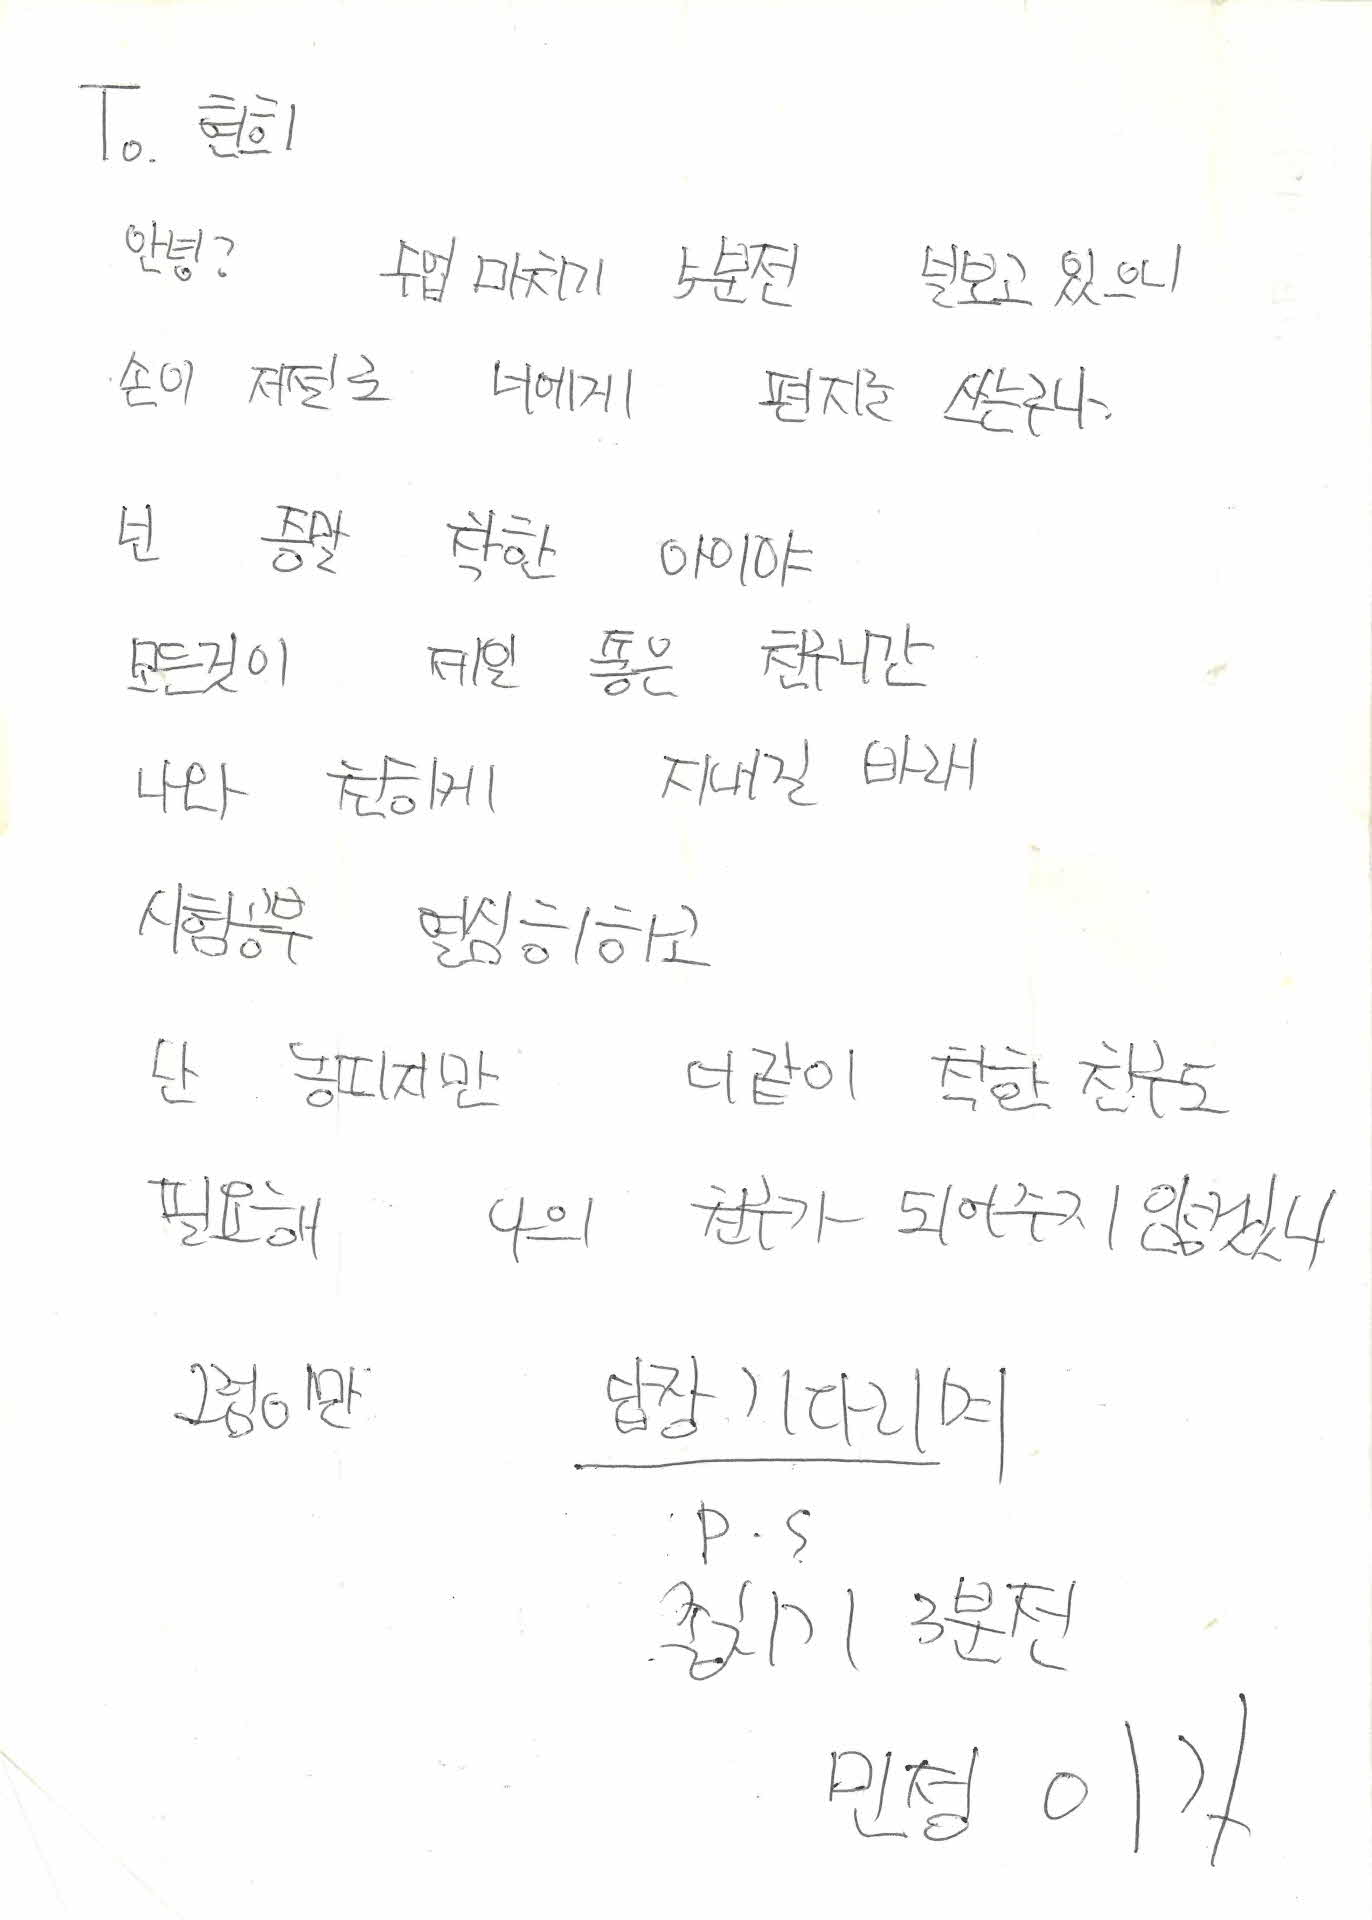 To. 현희
안녕? 수업 마치기 5분전 널보고 있으니
손이 저절로 너에게 편지를 쓰는구나.
넌 증말 착한 아이야
모든것이 제일 좋은 친구니깐
나와 친하게 지내길 바래
시험공부 열심히하고
난 농띠지만 너같이 착한 친구도
필요해 나의 친구가 되어주지 않겠니
그럼이만 답장기다리며
P.S
종치기 3분전
민정 이가